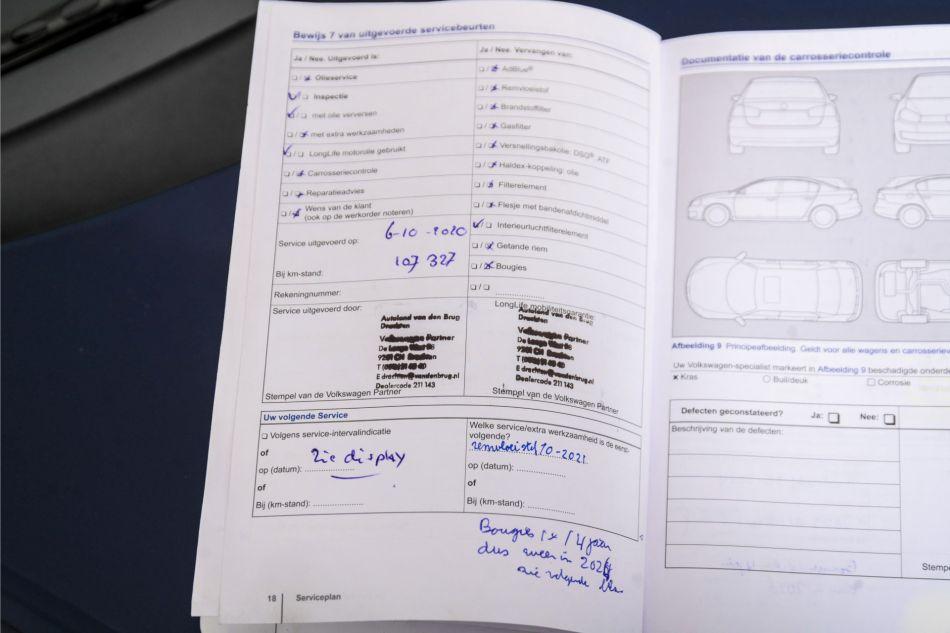 Bewijs 7 van uitgevoerde servicebeurten
Ja / Nee. Uitgevoerd is:
Olieservice
Inspectie
met olie verversen
met extra werkzaamheden
LongLife motorolie gebruikt
Carrosseriecontrole
Reparatieadvies
Wens van de klant
(ook op de werkorder noteren)
Service uitgevoerd op: 6-10-2020
Bij km-stand: 107 327
Rekeningnummer:
Service uitgevoerd door:
Autoland van den Brug
Drachten
Volkswagen Partner
E drachten@vandenbrug.nl
Dealercode 211 143
Stempel van de Volkswagen Partner
Ja / Nee. Vervangen van:
AdBlue®
Remvloeistof
Brandstoffilter
Gasfilter
Versnellingsbakolie: DSG®, ATF
Haldex-koppeling: olie
Filterelement
Flesje met bandenafdichtmiddel
Interieurluchtfilterelement
Getande riem
Bougies
LongLife mobiliteitsgarantie:
Autoland van den Brug
Drachten
Volkswagen Partner
E drachten@vandenbrug.nl
Dealercode 211 143
Stempel van de Volkswagen Partner
Uw volgende Service
Volgens service-intervalindicatie
of
Zie display
op (datum):
of
Bij (km-stand):
Welke service/extra werkzaamheid is de eerst-
volgende?
remvloeistof 10-2021
op (datum):
of
Bij (km-stand):
Bougies 1x / 4 jaar
dus weer in
zie volgende
18 Serviceplan
Documentatie van de carrosseriecontrole
Afbeelding 9 Principeafbeelding. Geldt voor alle wagens en
Uw Volkswagen-specialist markeert in Afbeelding 9 beschadigde
Kras Buil/deuk Corrosie
Defecten geconstateerd? Ja: Nee:
Beschrijving van de defecten: